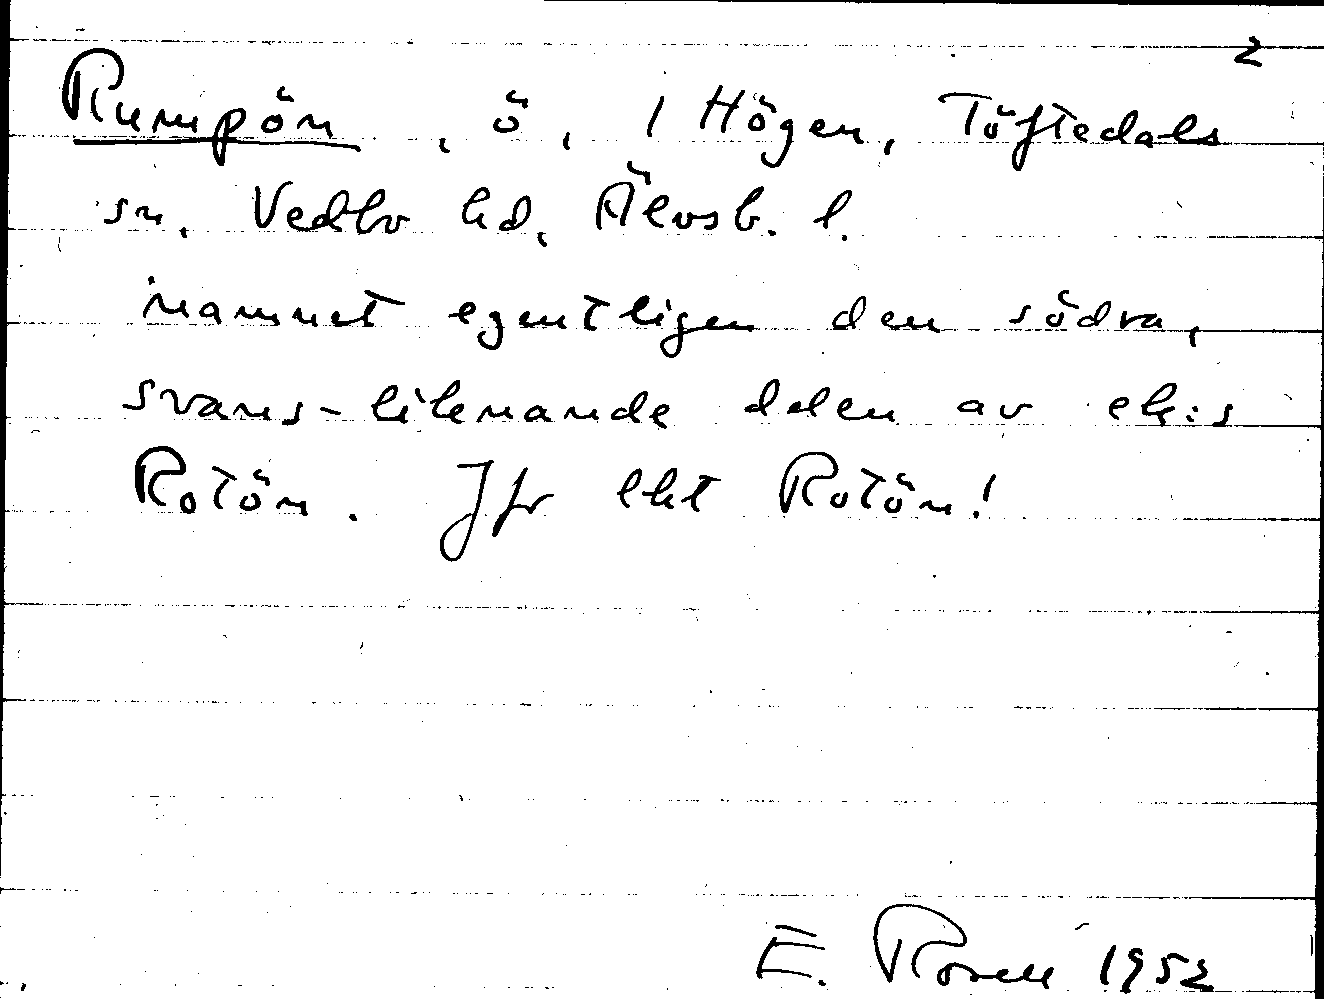 2
Rumpön, ö, i Högen, Töftedals
sn. Vedbo hd, Älvsb. l.
namnet egentligen den södra,
svans-liknande delen av ek:s
Rotön. Jfr ekt Rotön!
E. Rosell 1952